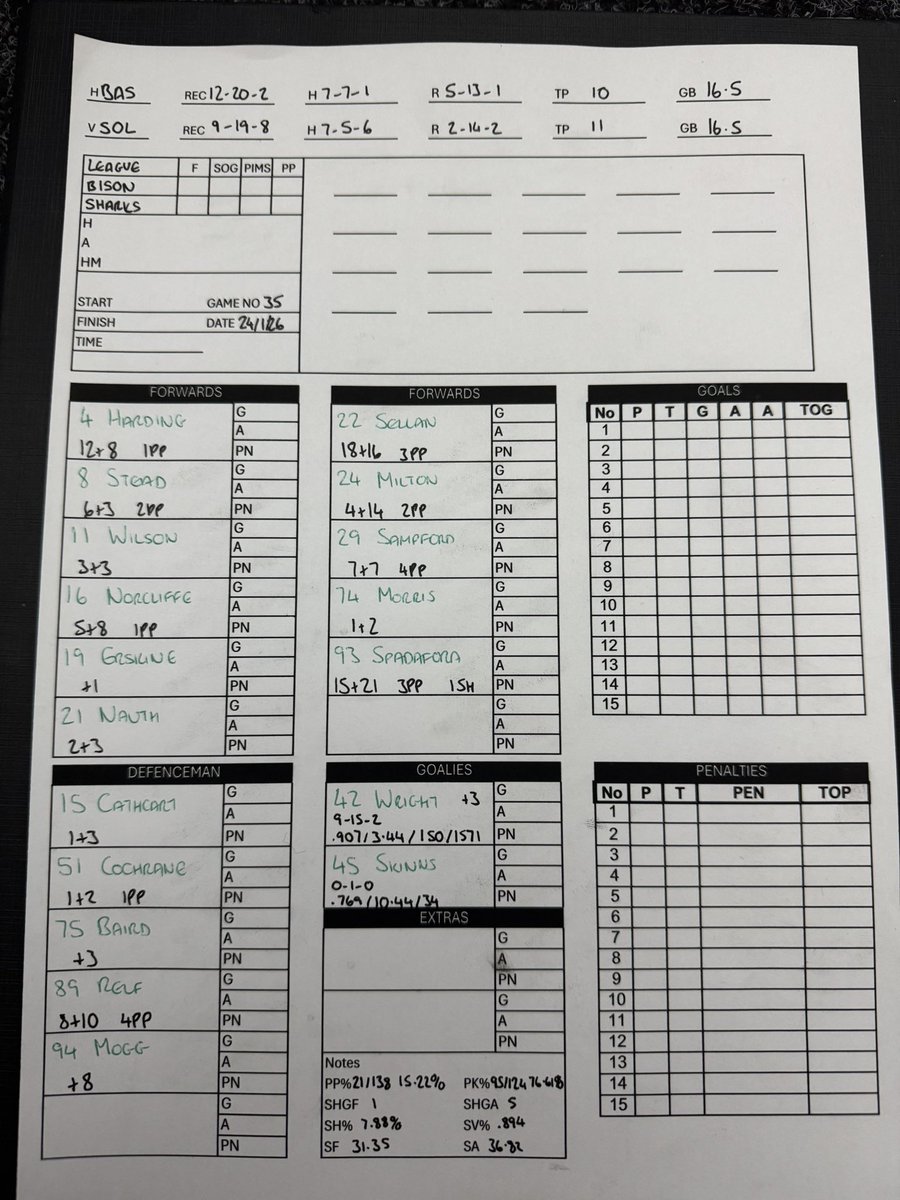 H BAS REC 12-20-2 H 7-7-1 R 5-13-1 TP 10 GB 16.5
V SOL REC 9-19-8 H 7-5-6 R 2-14-2 TP 11 GB 16.5
LEAGUE F SOG PIMS PP
BISON
SHARKS
H
A
HM
START GAME NO 35
FINISH DATE 24/1/26
TIME
FORWARDS
4 HARDING G
A
12+8 1PP PN
8 STEAD G
A
6+3 2PP PN
11 WILSON G
A
3+3 PN
16 NORCLIFFE G
A
5+8 1PP PN
19 ERSKINE G
A
+1 PN
21 NAUTH G
A
2+3 PN
FORWARDS
22 SELLAN G
A
18+16 3PP PN
24 MILTON G
A
4+14 2PP PN
29 SAMPFORD G
A
7+7 4PP PN
74 MORRIS G
A
1+2 PN
93 SPADAFORA G
A
15+21 3PP 1SH PN
G
A
PN
GOALS
No P T G A A TOG
1
2
3
4
5
6
7
8
9
10
11
12
13
14
15
DEFENCEMAN
15 CATHCART G
A
1+3 PN
51 COCHRANE G
A
1+2 1PP PN
75 BAIRD G
A
+3 PN
89 RELF G
A
8+10 4PP PN
94 MOGG G
A
+8 PN
G
A
PN
GOALIES
42 WRIGHT +3 G
9-15-2 A
.907/3.44/150/1571 PN
45 SKINNS G
0-1-0 A
.769/10.44/34 PN
EXTRAS
G
A
PN
G
A
PN
Notes
PP% 21/138 15.22% PK% 95/124 76.618
SHGF 1 SHGA 5
SH% 7.88% SV% .894
SF 31.35 SA 36.82
PENALTIES
No P T PEN TOP
1
2
3
4
5
6
7
8
9
10
11
12
13
14
15